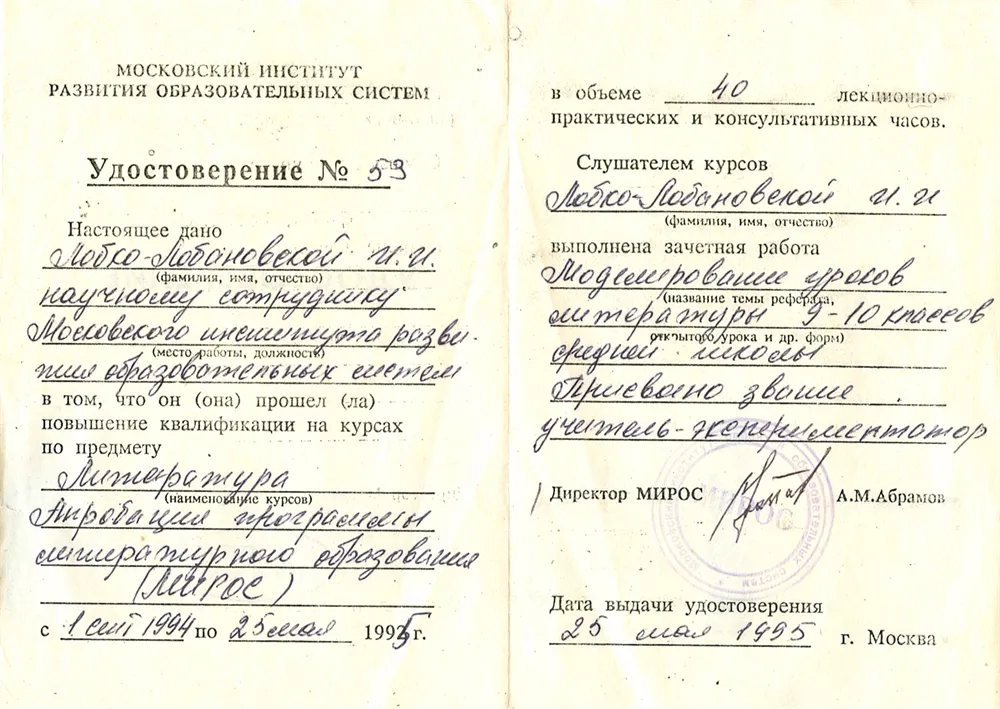 МОСКОВСКИЙ ИНСТИТУТ
РАЗВИТИЯ ОБРАЗОВАТЕЛЬНЫХ СИСТЕМ
Удостоверение № 53
Настоящее дано
Лобко-Лобановской И. И.
(фамилия, имя, отчество)
научному сотруднику
Московского института разви-
(место работы, должность)
тия образовательных систем
в том, что он (она) прошел (ла)
повышение квалификации на курсах
по предмету
Литература
(наименование курсов)
Апробация программы
литературного образования
(МИРОС)
с 1 сент 1994 по 25 мая 1995 г.
в объеме 40 лекционно-
практических и консультативных часов.
Слушателем курсов
Лобко-Лобановской И. И
(фамилия, имя, отчество)
выполнена зачетная работа
Моделирование уроков
(название темы реферата,
литературы 9-10 классов
открытого урока и др. форм)
средней школы
Присвоено звание
учитель-экспериментатор
Директор МИРОС А.М.Абрамов
МИРОС
Дата выдачи удостоверения
25 мая 1995 г. Москва